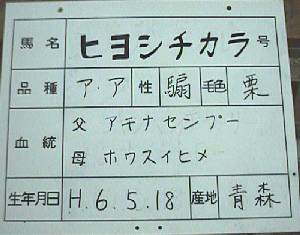 馬名 ヒヨシチカラ号
品種 ア.ア 性 騸 毛色 栗
血統 父 アキナセンプー
母 ホウスイヒメ
生年月日 H.6.5.18 産地 青森